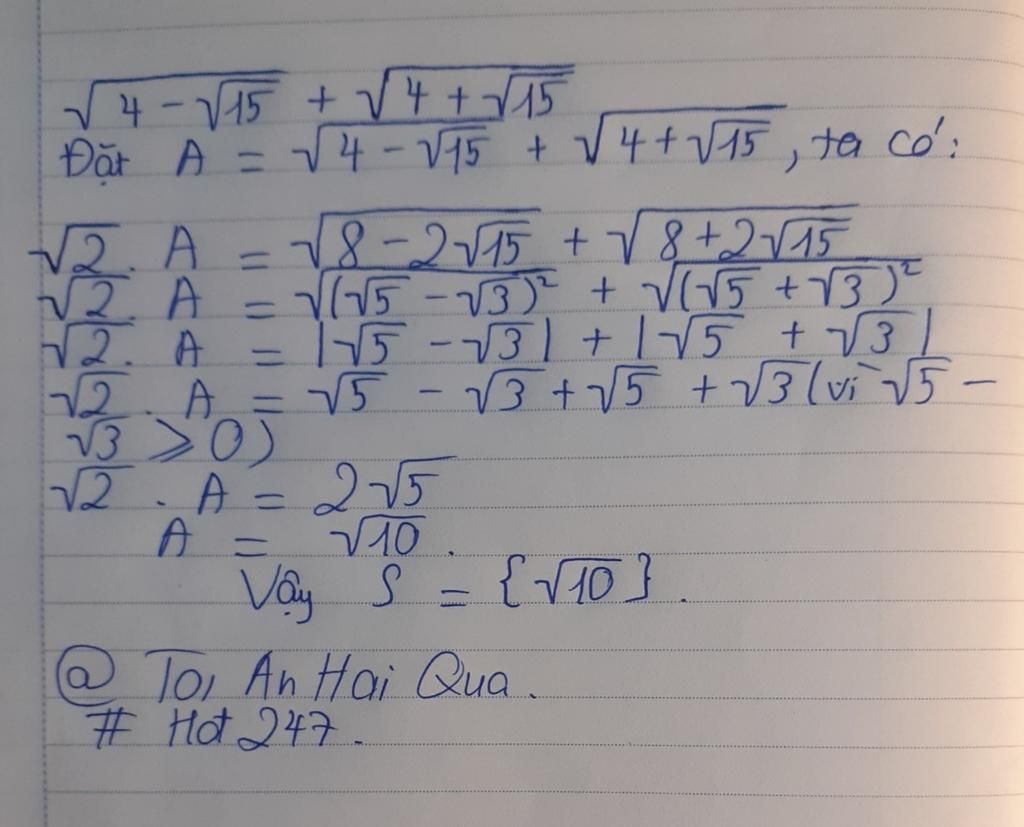 √(4 - √15) + √(4 + √15)
Đặt A = √(4 - √15) + √(4 + √15), ta có:
√2. A = √(8 - 2√15) + √(8 + 2√15)
√2. A = √((√5 - √3)²) + √((√5 + √3)²)
√2. A = |√5 - √3| + |√5 + √3|
√2. A = √5 - √3 + √5 + √3 (vì √5 -
√3 ⩾ 0)
√2. A = 2√5
A = √10.
Vậy S = {√10}.
@ Toi An Hai Qua.
# Hot 247.